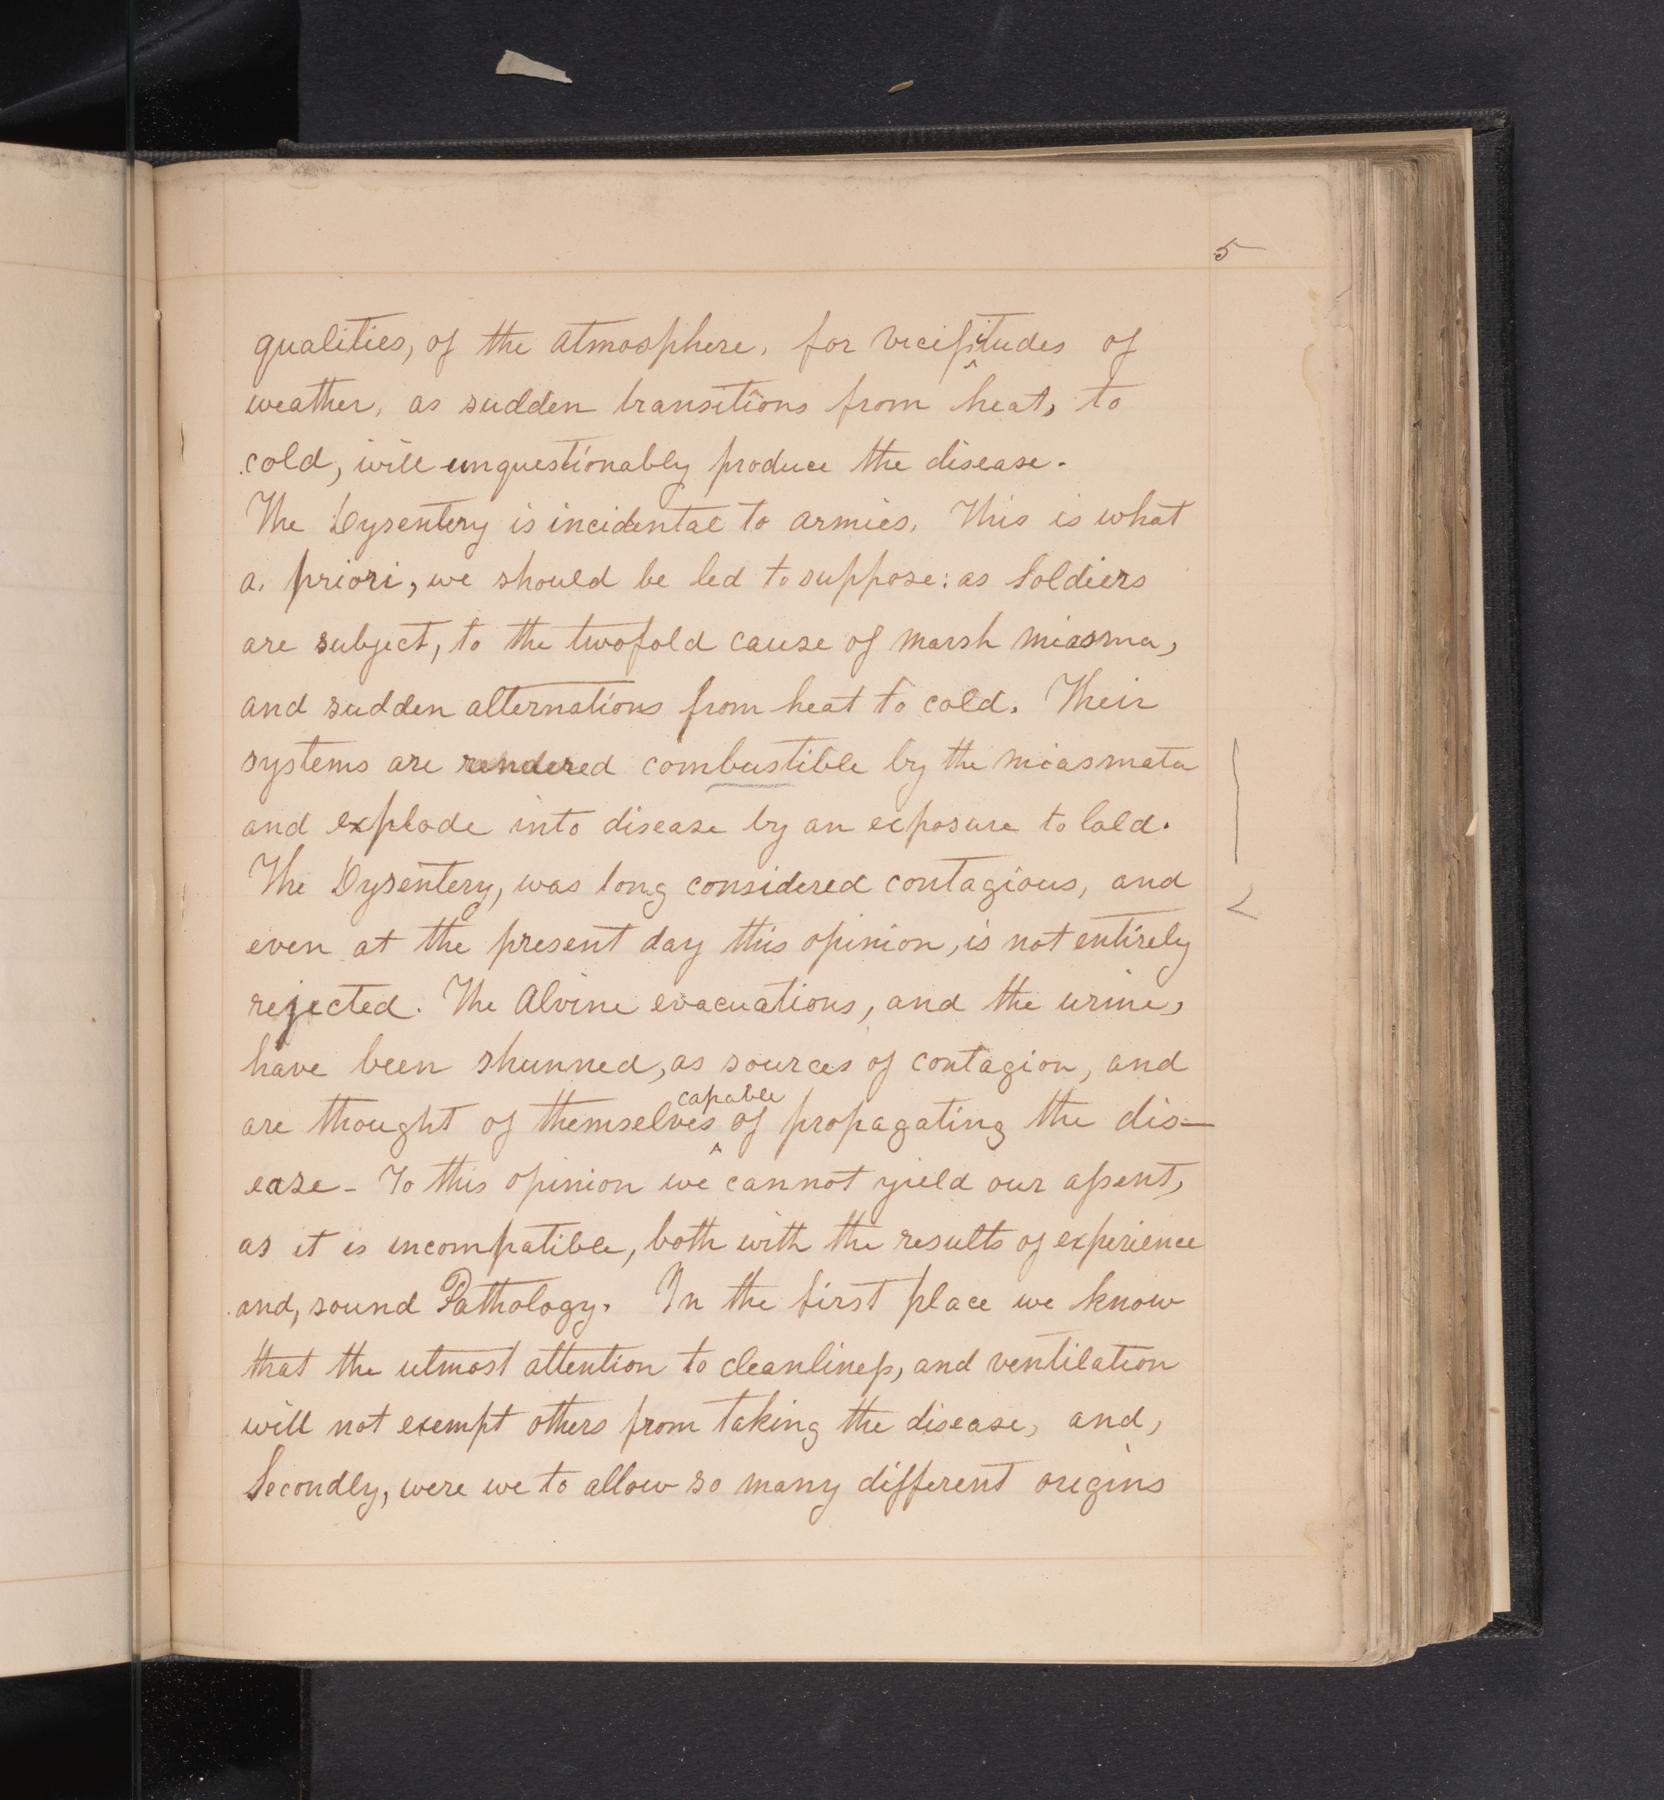 5
qualities, of the atmosphere, for vicissitudes of
weather, as sudden transitions from heat, to
cold, will unquestionably produce the disease.
The Dysentery is incidental to armies. This is what
a. priori, we should be led to suppose: as Soldiers
are subject, to the twofold cause of marsh miasma,
and sudden alternations from heat to cold. Their
systems are rendered combustible by the miasmata
and explode into disease by an exposure to Cold.
The Dysentery, was long considered contagious, and
even at the present day this opinion, is not entirely
rejected. The Alvine evacuations, and the urine,
have been shunned, as sources of contagion, and
are thought of themselves capable of propagating the dis-
ease - To this opinion we cannot yield our assent,
as it is incompatible, both with the results of experience
and, sound Pathology. In the first place we know
that the utmost attention to cleanliness, and ventilation
will not exempt others from taking the disease, and,
Secondly, were we to allow so many different origins